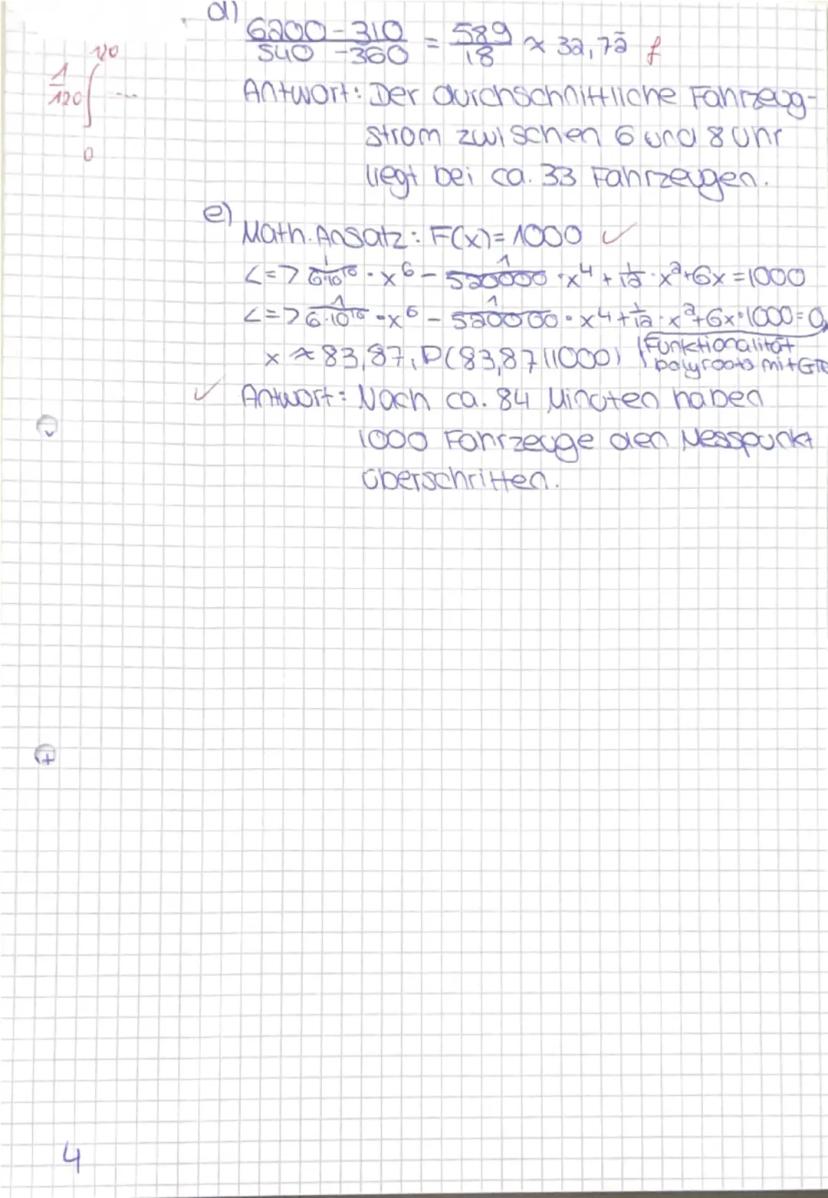 d)
6200 - 310 / 540 - 360 = 589 / 18 ≈ 32,72 f
1/120 ∫ 120 0 ...
Antwort: Der durchschnittliche Fahrzeug-
strom zwischen 6 und 8 Uhr
liegt bei ca. 33 Fahrzeugen.
e) Math. Ansatz: F(x) = 1000 ✓
<=> 1/6·10^10 · x^6 - 1/520000 · x^4 + 1/12 · x^2 + 6x = 1000
<=> 1/6·10^10 · x^6 - 1/520000 · x^4 + 1/12 · x^2 + 6x - 1000 = 0
x ≈ 83,87, P(83,87|1000) Funktionalität
polyroots mit GTR
✓ Antwort: Nach ca. 84 Minuten haben
1000 Fahrzeuge den Messpunkt
überschritten.
4